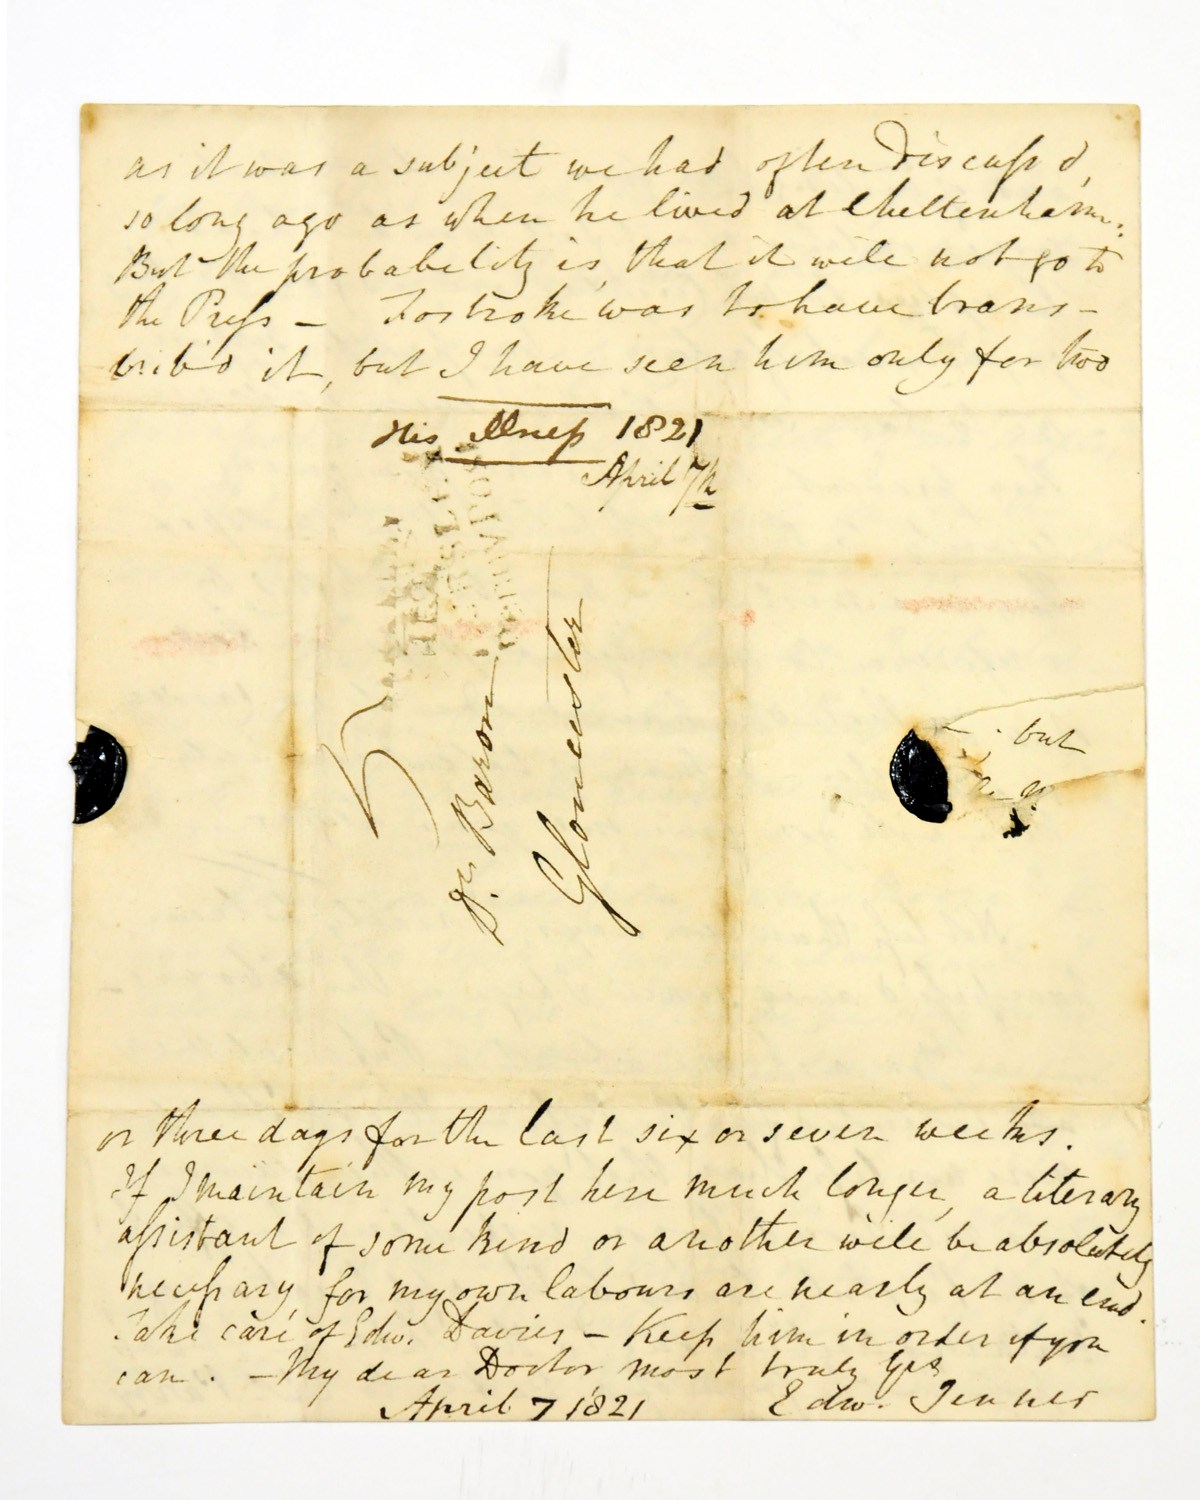 as it was a subject we had often discuss'd,
so long ago as when he lived at Cheltenham.
But the probability is that it will not go to
the Press — Fosbroke was to have trans-
crib'd it, but I have seen him only for two
His Illness 1821
April 7th
5
Dr. Baron
Gloucester
but
or three days for the last six or seven weeks.
If I maintain my post here much longer, a literary
assistant of some kind or another will be absolutely
necessary, for my own labours are nearly at an end.
Take care of Edw. Davies — Keep him in order if you
can. — My dear Doctor most truly Yrs
Edw. Jenner
April 7 1821